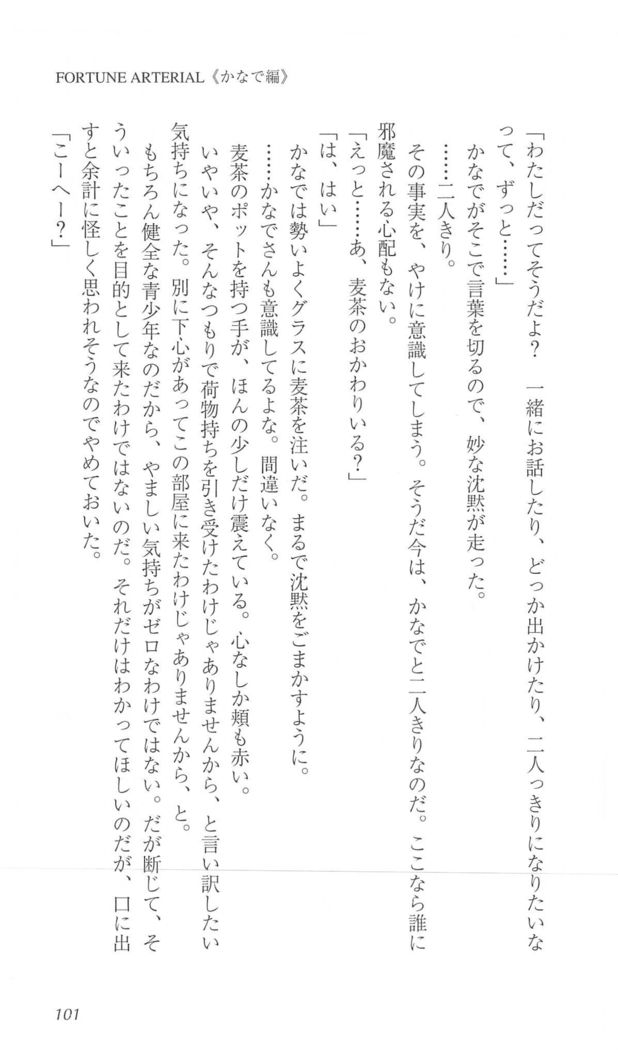 FORTUNE ARTERIAL《かなで編》
「わたしだってそうだよ？　一緒にお話したり、どっか出かけたり、二人っきりになりたいな
って、ずっと……」
　かなでがそこで言葉を切るので、妙な沈黙が走った。
　……二人きり。
　その事実を、やけに意識してしまう。そうだ今は、かなでと二人きりなのだ。ここなら誰に
邪魔される心配もない。
「えっと……あ、麦茶のおかわりいる？」
「は、はい」
　かなでは勢いよくグラスに麦茶を注いだ。まるで沈黙をごまかすように。
　……かなでさんも意識してるよな。間違いなく。
　麦茶のポットを持つ手が、ほんの少しだけ震えている。心なしか頬も赤い。
　いやいや、そんなつもりで荷物持ちを引き受けたわけじゃありませんから、と言い訳したい
気持ちになった。別に下心があってこの部屋に来たわけじゃありませんから、と。
　もちろん健全な青少年なのだから、やましい気持ちがゼロなわけではない。だが断じて、そ
ういったことを目的として来たわけではないのだ。それだけはわかってほしいのだが、口に出
すと余計に怪しく思われそうなのでやめておいた。
「こーへー？」
101